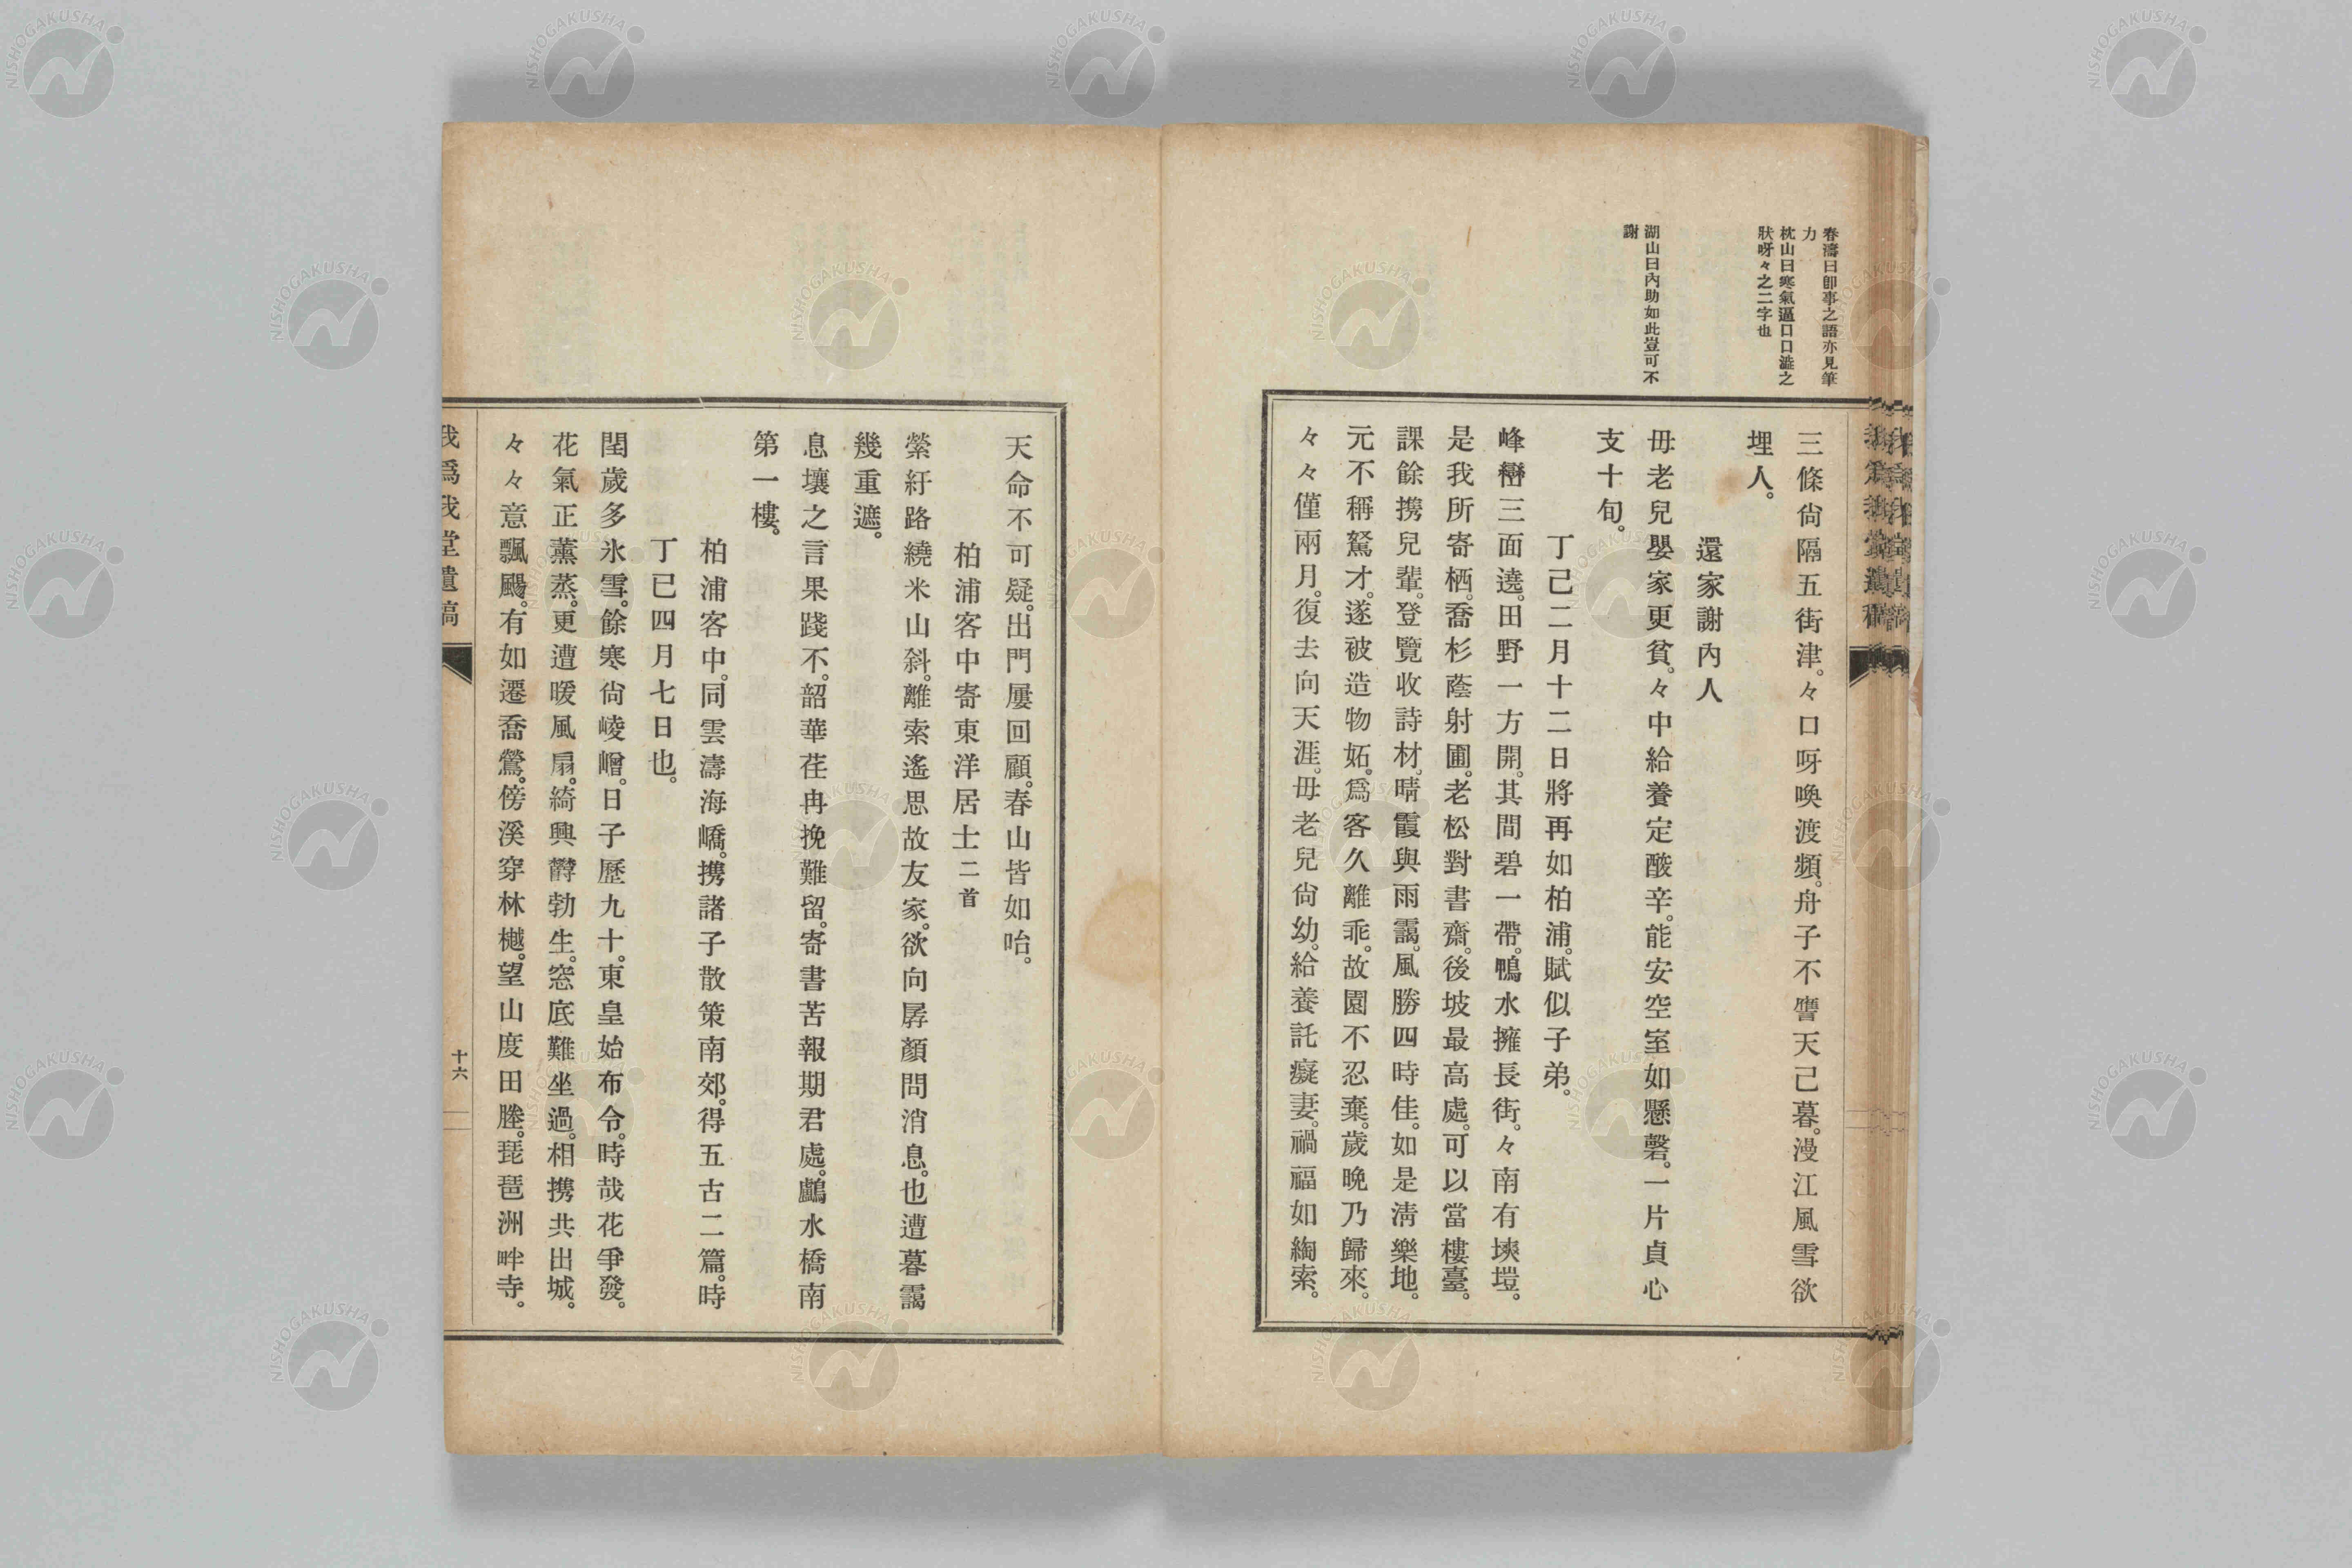 春濤曰卽事之語亦見筆
力
枕山曰寒氣逼口口澁之
狀呀々之二字也
湖山曰內助如此豈可不
謝
三條尙隔五街津。々口呀喚渡頻。舟子不譍天已暮。漫江風雪欲
埋人。
還家謝內人
毋老兒嬰家更貧。々中給養定酸辛。能安空室如懸磬。一片貞心
支十旬。
丁己二月十二日將再如柏浦。賦似子弟。
峰巒三面遶。田野一方開。其間碧一帶。鴨水擁長街。々南有塽塏。
是我所寄栖。喬杉蔭射圃。老松對書齋。後坡最高處。可以當樓臺。
課餘携兒輩。登覽收詩材。晴霞與雨靄。風勝四時佳。如是淸樂地。
元不稱駑才。遂被造物妬。爲客久離乖。故園不忍棄。歲晚乃歸來。
々々僅兩月。復去向天涯。毋老兒尙幼。給養託癡妻。禍福如綯索。
天命不可疑。出門屢回顧。春山皆如咍。
柏浦客中寄東洋居士二首
縈紆路繞米山斜。離索遙思故友家。欲向孱顏問消息。也遭暮靄
幾重遮。
息壤之言果踐不。韶華荏冉挽難留。寄書苦報期君處。鸕水橋南
第一樓。
柏浦客中。同雲濤海嶠。携諸子散策南郊。得五古二篇。時
丁已四月七日也。
閏歲多氷雪。餘寒尙崚嶒。日子歷九十。東皇始布令。時哉花爭發。
花氣正薰蒸。更遭暖風扇。綺興欝勃生。窓底難坐過。相携共出城。
々々意飄颺。有如遷喬鶯。傍溪穿林樾。望山度田塍。琵琶洲畔寺。
我爲我堂遺稿
十六
NISHOGAKUSHA